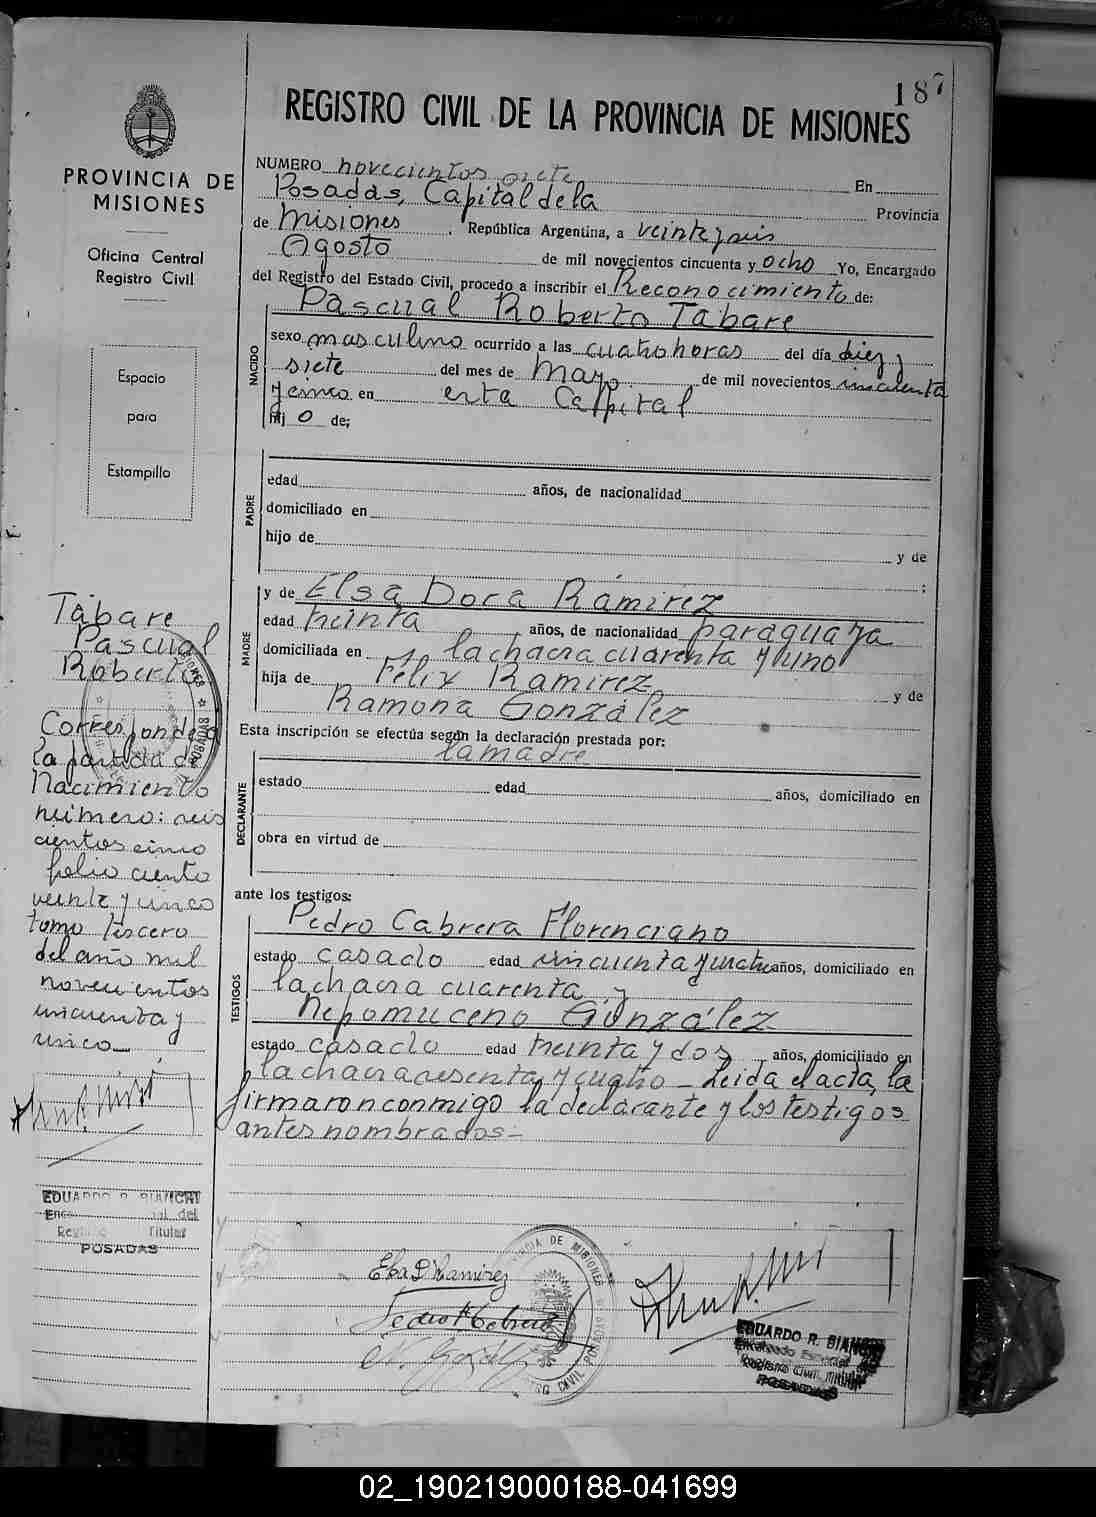 187
REGISTRO CIVIL DE LA PROVINCIA DE MISIONES
PROVINCIA DE
MISIONES
Oficina Central
Registro Civil
Espacio
para
Estampilla
NUMERO novecientos siete En
Posadas, Capital de la Provincia
de Misiones, República Argentina, a veinte y seis
Agosto de mil novecientos cincuenta y ocho Yo, Encargado
del Registro del Estado Civil, procedo a inscribir el Reconocimiento de:
Pascual Roberto Tabare
NACIDO
sexo masculino ocurrido a las cuatro horas del día diez y
siete del mes de Mayo de mil novecientos cincuenta
y cinco en esta Capital
hij o de;
PADRE
edad años, de nacionalidad
domiciliado en
hijo de y de
;
MADRE
y de Elsa Dora Ramirez
edad treinta años, de nacionalidad paraguaya
domiciliada en la chacra cuarenta y uno
hija de Félix Ramirez y de
Ramona González
Esta inscripción se efectúa según la declaración prestada por:
la madre
DECLARANTE
estado edad años, domiciliado en
obra en virtud de
ante los testigos:
TESTIGOS
Pedro Cabrera Florenciano
estado casado edad cincuenta y cuatro años, domiciliado en
la chacra cuarenta y
Nepomuceno González
estado casado edad treinta y dos años, domiciliado en
la chacra sesenta y cuatro - Leida el acta, la
firmaron conmigo la declarante y los testigos
antes nombrados -
Tabare
Pascual
Roberto
Corresponde a
la partida de
Nacimiento
número: seis
cientos cinco
folio ciento
veinte y cinco
tomo tercero
del año mil
novecientos
cincuenta y
cinco
EDUARDO R. BIANCHI
Titular
POSADAS
Elsa D Ramirez
Pedro Cabrera
PROVINCIA DE MISIONES
REG CIVIL POSADAS
EDUARDO R. BIANCHI
Encargado Especial del
Registro Civil Titular
POSADAS
02_190219000188-041699